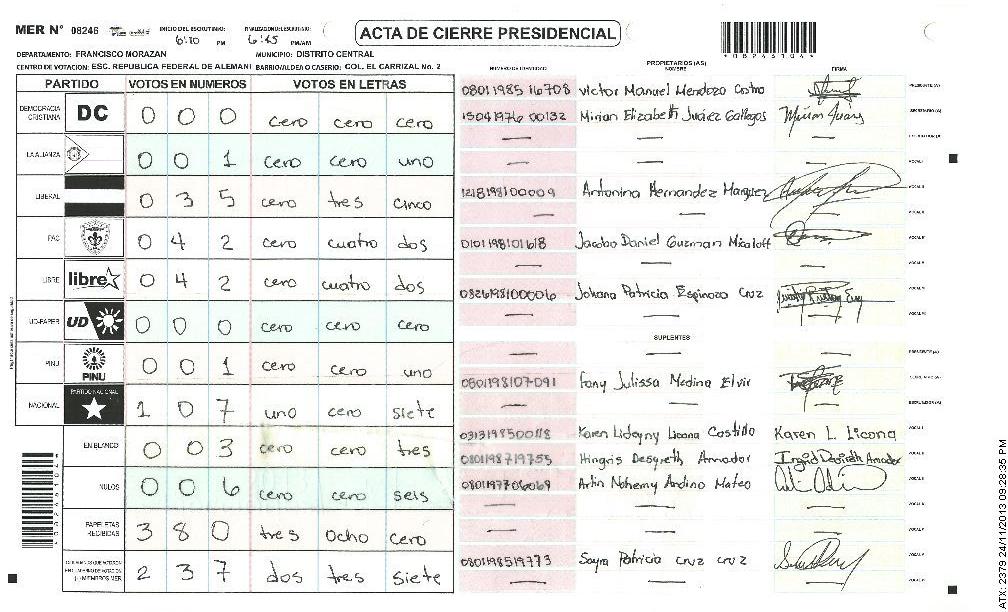 MER N° 08246 INICIO DEL ESCRUTINIO: 6:10 PM FINALIZACION ESCRUTINIO: 6:45 PM/AM
ACTA DE CIERRE PRESIDENCIAL
DEPARTAMENTO: FRANCISCO MORAZAN MUNICIPIO: DISTRITO CENTRAL
CENTRO DE VOTACION: ESC. REPUBLICA FEDERAL DE ALEMANI BARRIO/ALDEA O CASERIO: COL. EL CARRIZAL No. 2
PARTIDO VOTOS EN NUMEROS VOTOS EN LETRAS
DEMOCRACIA CRISTIANA DC 0 0 0 cero cero cero
LA ALIANZA 0 0 1 cero cero uno
LIBERAL 0 3 5 cero tres cinco
PAC 0 4 2 cero cuatro dos
LIBRE libre 0 4 2 cero cuatro dos
UD-FAPER UD 0 0 0 cero cero cero
PINU PINU 0 0 1 cero cero uno
NACIONAL PARTIDO NACIONAL 1 0 7 uno cero siete
EN BLANCO 0 0 3 cero cero tres
NULOS 0 0 6 cero cero seis
PAPELETAS RECIBIDAS 3 8 0 tres ocho cero
2 3 7 dos tres siete
NUMERO DE IDENTIDAD PROPIETARIOS (AS) NOMBRE FIRMA
0801 1985 16708 Victor Manuel Mendoza Castro PRESIDENTE (A)
15041976 00132 Mirian Elizabeth Juárez Gallegos SECRETARIO (A)
ESCRUTADOR (A)
VOCAL I
1218198100009 Antonina Hernandez Marquez VOCAL II
VOCAL III
0101198101618 Jacobo Daniel Guzman VOCAL IV
VOCAL V
0826198100006 Johana Patricia Espinoza Cruz
SUPLENTES
PRESIDENTE (A)
0801198107091 Fany Julissa Medina Elvir SECRETARIO (A)
ESCRUTADOR (A)
0313198500118 Karen Lideyny Licona Castillo Karen L. Licona VOCAL I
0801198719755 Hingris Desgreth Amador
0801197706069 Arlin Nohemy Andino Mateo
0801198519773 Sayra Patricia Cruz Cruz
ATX: 2379 24/11/2013 09:28:35 PM